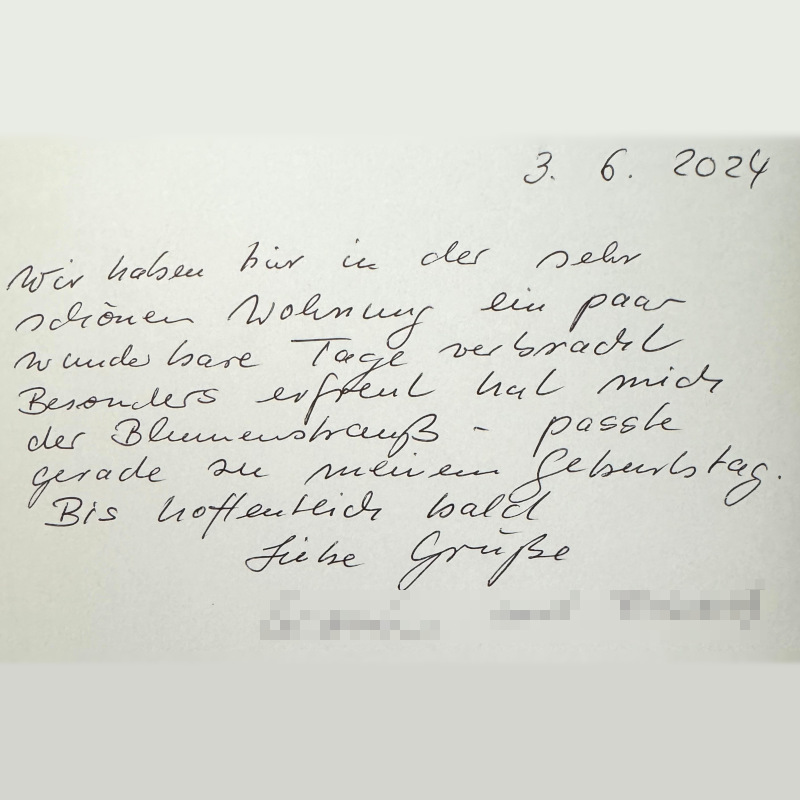 3. 6. 2024
Wir haben hier in der sehr
schönen Wohnung ein paar
wunderbare Tage verbracht
Besonders erfreut hat mich
der Blumenstrauß - passte
gerade zu meinem Geburtstag.
Bis hoffentlich bald
Liebe Grüße